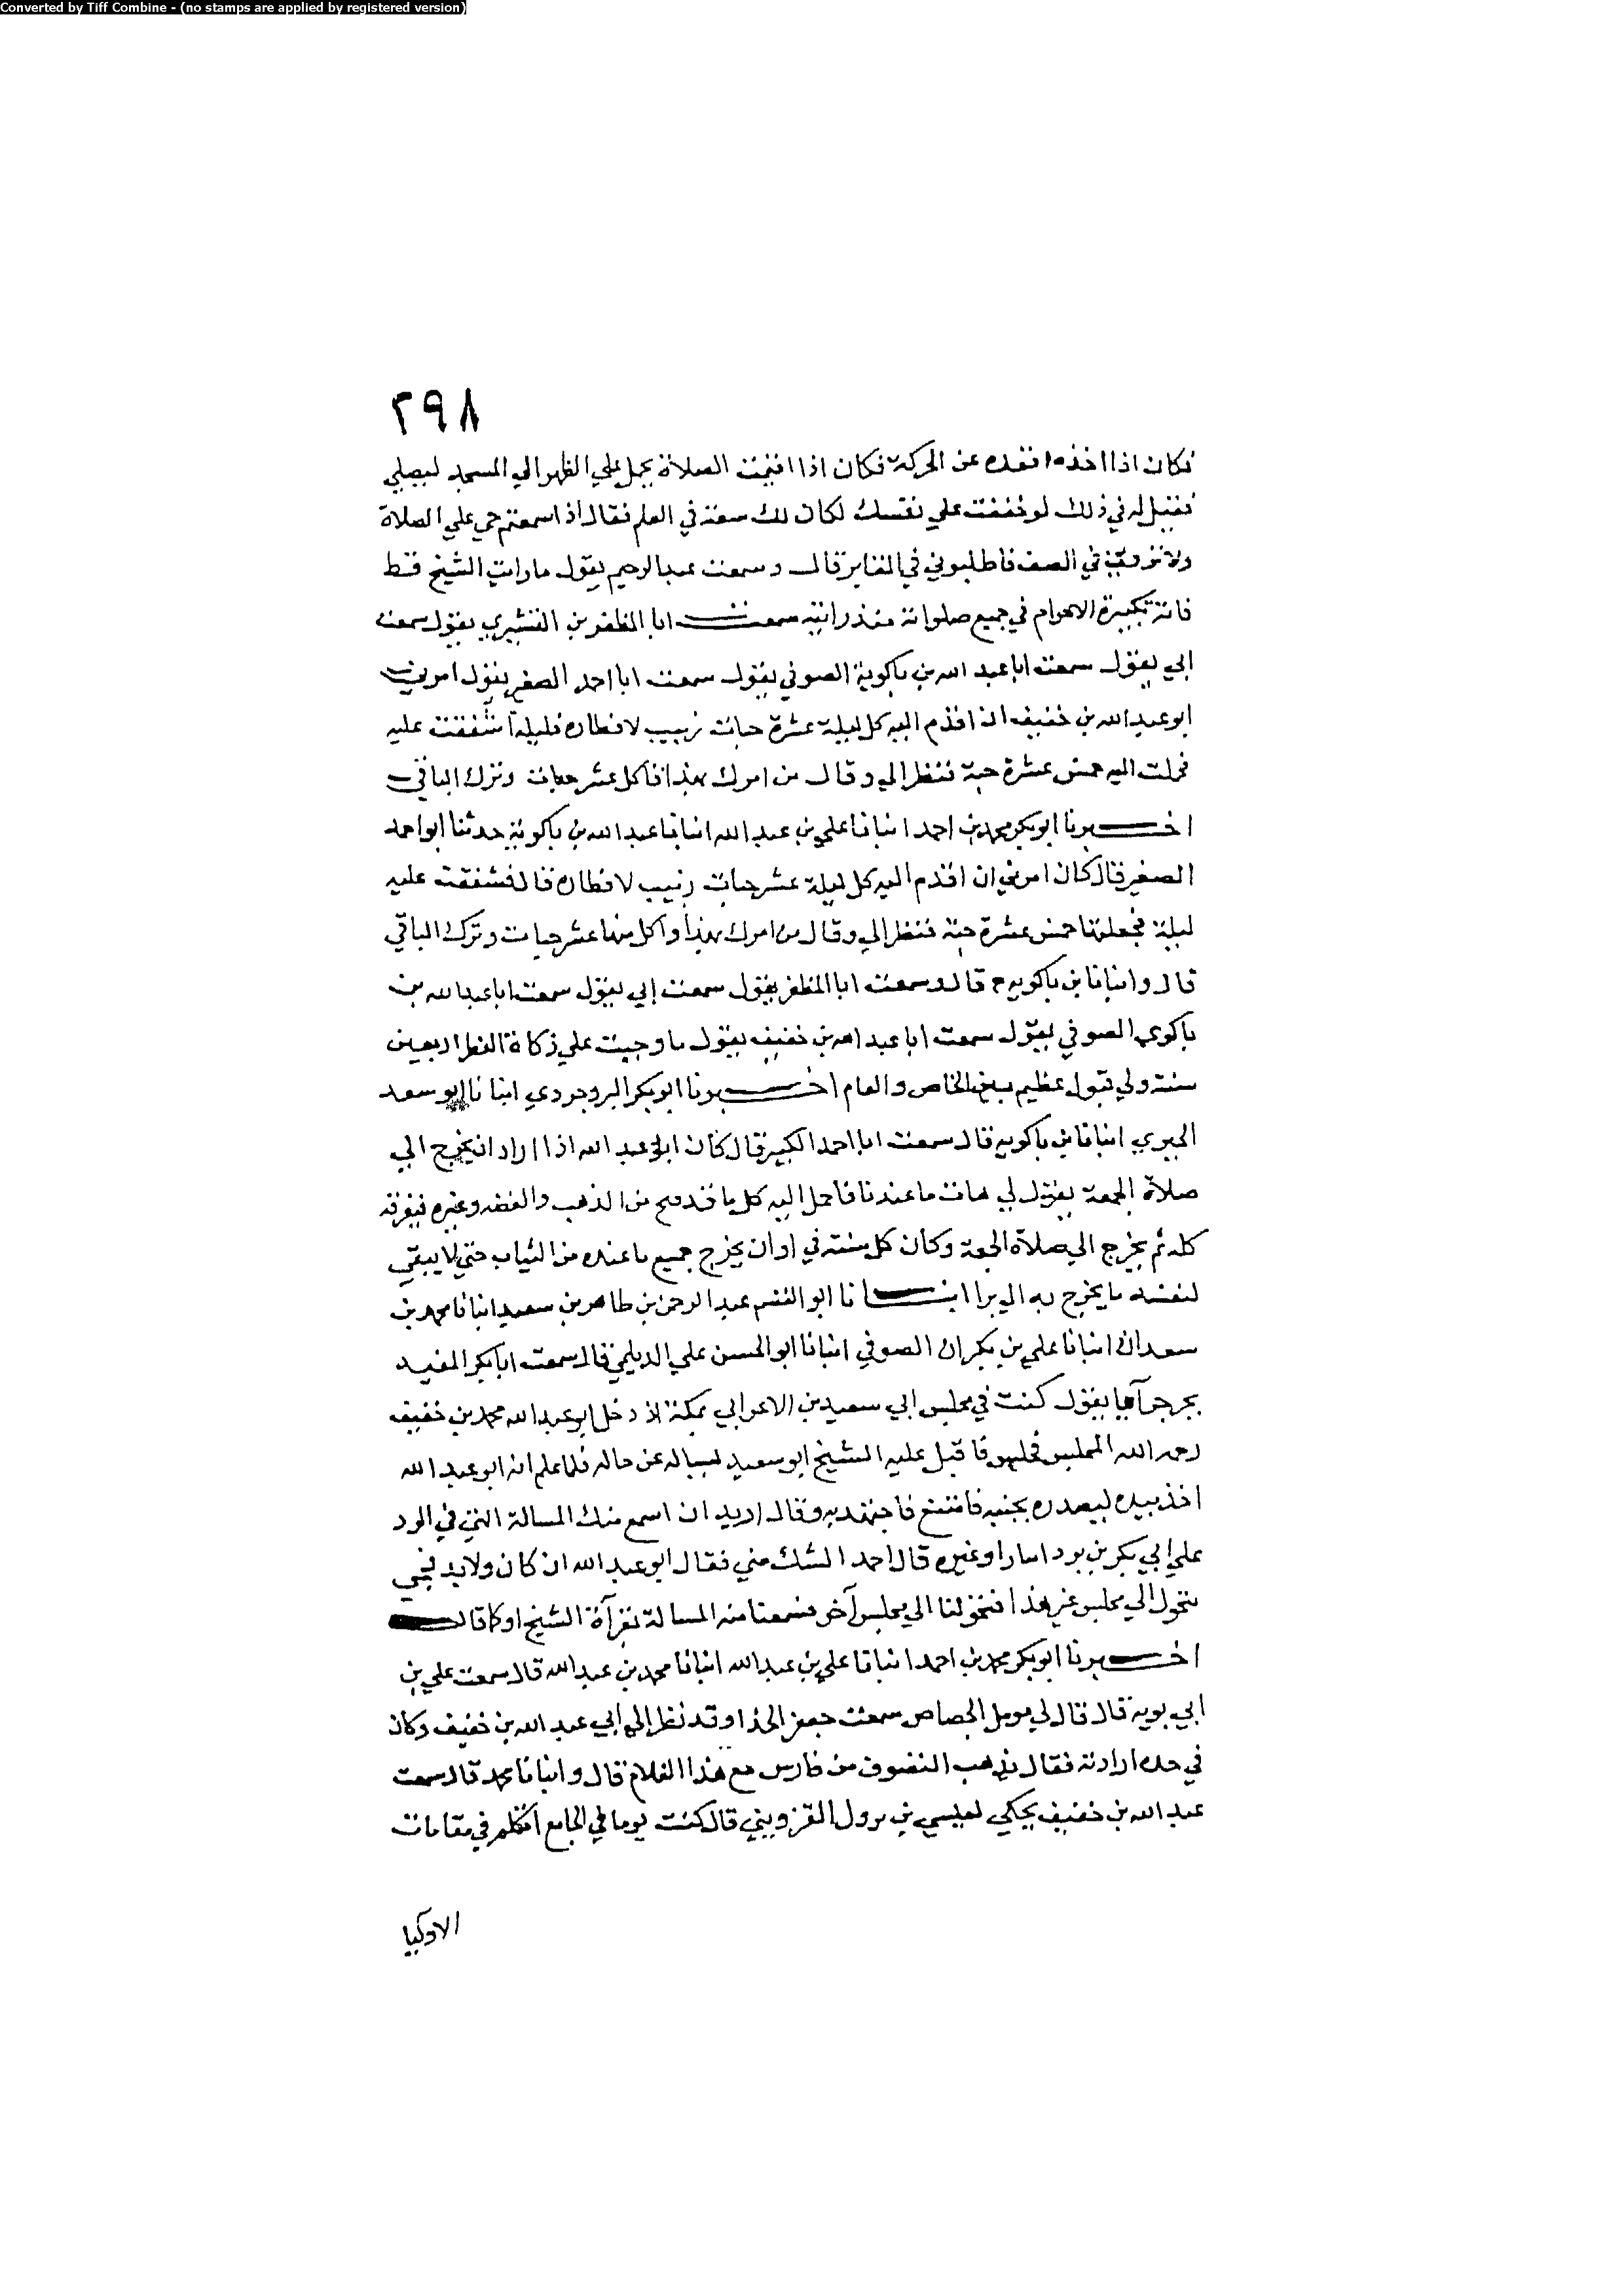 Converted by Tiff Combine - (no stamps are applied by registered version)
٢٩٨
فكان اذا اخذه اقعده عن الحركة فكان اذا اقيمت الصلاة يحمل علي الظهر الي المسجد ليصلي
فقيل له في ذلك لو خففت علي نفسك لكان لك سعة في العلم فقال اذا سمعتم حي علي الصلاة
ولا تروني في الصف فاطلبوني في المقابر قال وسمعت عبد الرحيم يقول ما رايت الشيخ قط
فاتته تكبيرة الاحرام في جميع صلواته منذ رايته سمعت ابا المظفر بن القشيري يقول سمعت
ابي يقول سمعت ابا عبد الله بن باكوية الصوفي يقول سمعت ابا احمد الصغير يقول امرني
ابو عبد الله بن خفيف ان اقدم اليه كل ليلة عشرة حبات زبيب لافطاره فليلة اشفقت عليه
فحملت اليه خمس عشرة حبة فنظر الي وقال من امرك بهذا فاكل عشر حبات وترك الباقي
اخبرنا ابو بكر محمد بن احمد انبانا علي بن عبد الله انبانا عبد الله بن باكوية حدثنا ابو احمد
الصغير قال كان امرني ان اقدم اليه كل ليلة عشر حبات زبيب لافطاره قال فشفقت عليه
ليلة فجعلتها خمس عشرة حبة فنظر الي وقال من امرك بهذا واكل منها عشر حبات وترك الباقي
قال وانبانا بن باكويه ح قال وسمعت ابا المظفر يقول سمعت ابي يقول سمعت ابا عبد الله بن
باكوي الصوفي يقول سمعت ابا عبد الله بن خفيف يقول ما وجبت علي زكاة الفطر اربعين
سنة ولي قبول عظيم بين الخاص والعام اخبرنا ابو بكر البروجردي انبانا ابو سعد
الحيري انبانا بن باكويه قال سمعت ابا احمد الكبير قال كان ابو عبد الله اذا اراد ان يخرج الي
صلاة الجمعة يقول لي هات ما عندنا فاحمل اليه كل ما قد فتح من الذهب والفضه وغيره فيفرقه
كله ثم يخرج الي صلاة الجمعة وكان كل سنة في اوان يخرج جميع ما عنده من الثياب حتي لا يبقي
لنفسه ما يخرج به الي برا انبانا ابو القسم عبد الرحمن بن طاهر بن سعيد انبانا محمد بن
سعدان انبانا علي بن بكران الصوفي انبانا ابو الحسن علي الديلمي قال سمعت ابا بكر المفيد
بجرجرايا يقول كنت في مجلس ابي سعيد بن الاعرابي بمكة اذ دخل ابو عبد الله محمد بن خفيف
رحمه الله المجلس فجلس فاقبل عليه الشيخ ابو سعيد يساله عن حاله فلما علم انه ابو عبد الله
اخذ بيده ليصدره بجنبه فامتنع فاجتهد به وقال اريد ان اسمع منك المسالة التي في الرد
علي ابي بكر بن يزداسارا وغيره قال احمد الشك مني فقال ابو عبد الله ان كان ولا بد
نتحول الي مجلس غير هذا فتحولنا الي مجلس آخر فسمعنا منه المسالة بقرآة الشيخ او كما قال
اخبرنا ابو بكر محمد بن احمد انبانا علي بن عبد الله انبانا محمد بن عبد الله قال سمعت علي بن
ابي بوية قال قال لي مومل الجصاص سمعت جعفر الحذا وقد نظر الي ابي عبد الله بن خفيف وكان
في حده ارادته فقال يذهب التصوف من فارس مع هذا الغلام قال وانبانا محمد قال سمعت
عبد الله بن خفيف يحكي لعيسي بن القزويني قال كنت يوما في الجامع اتكلم في مقامات
الاوليا